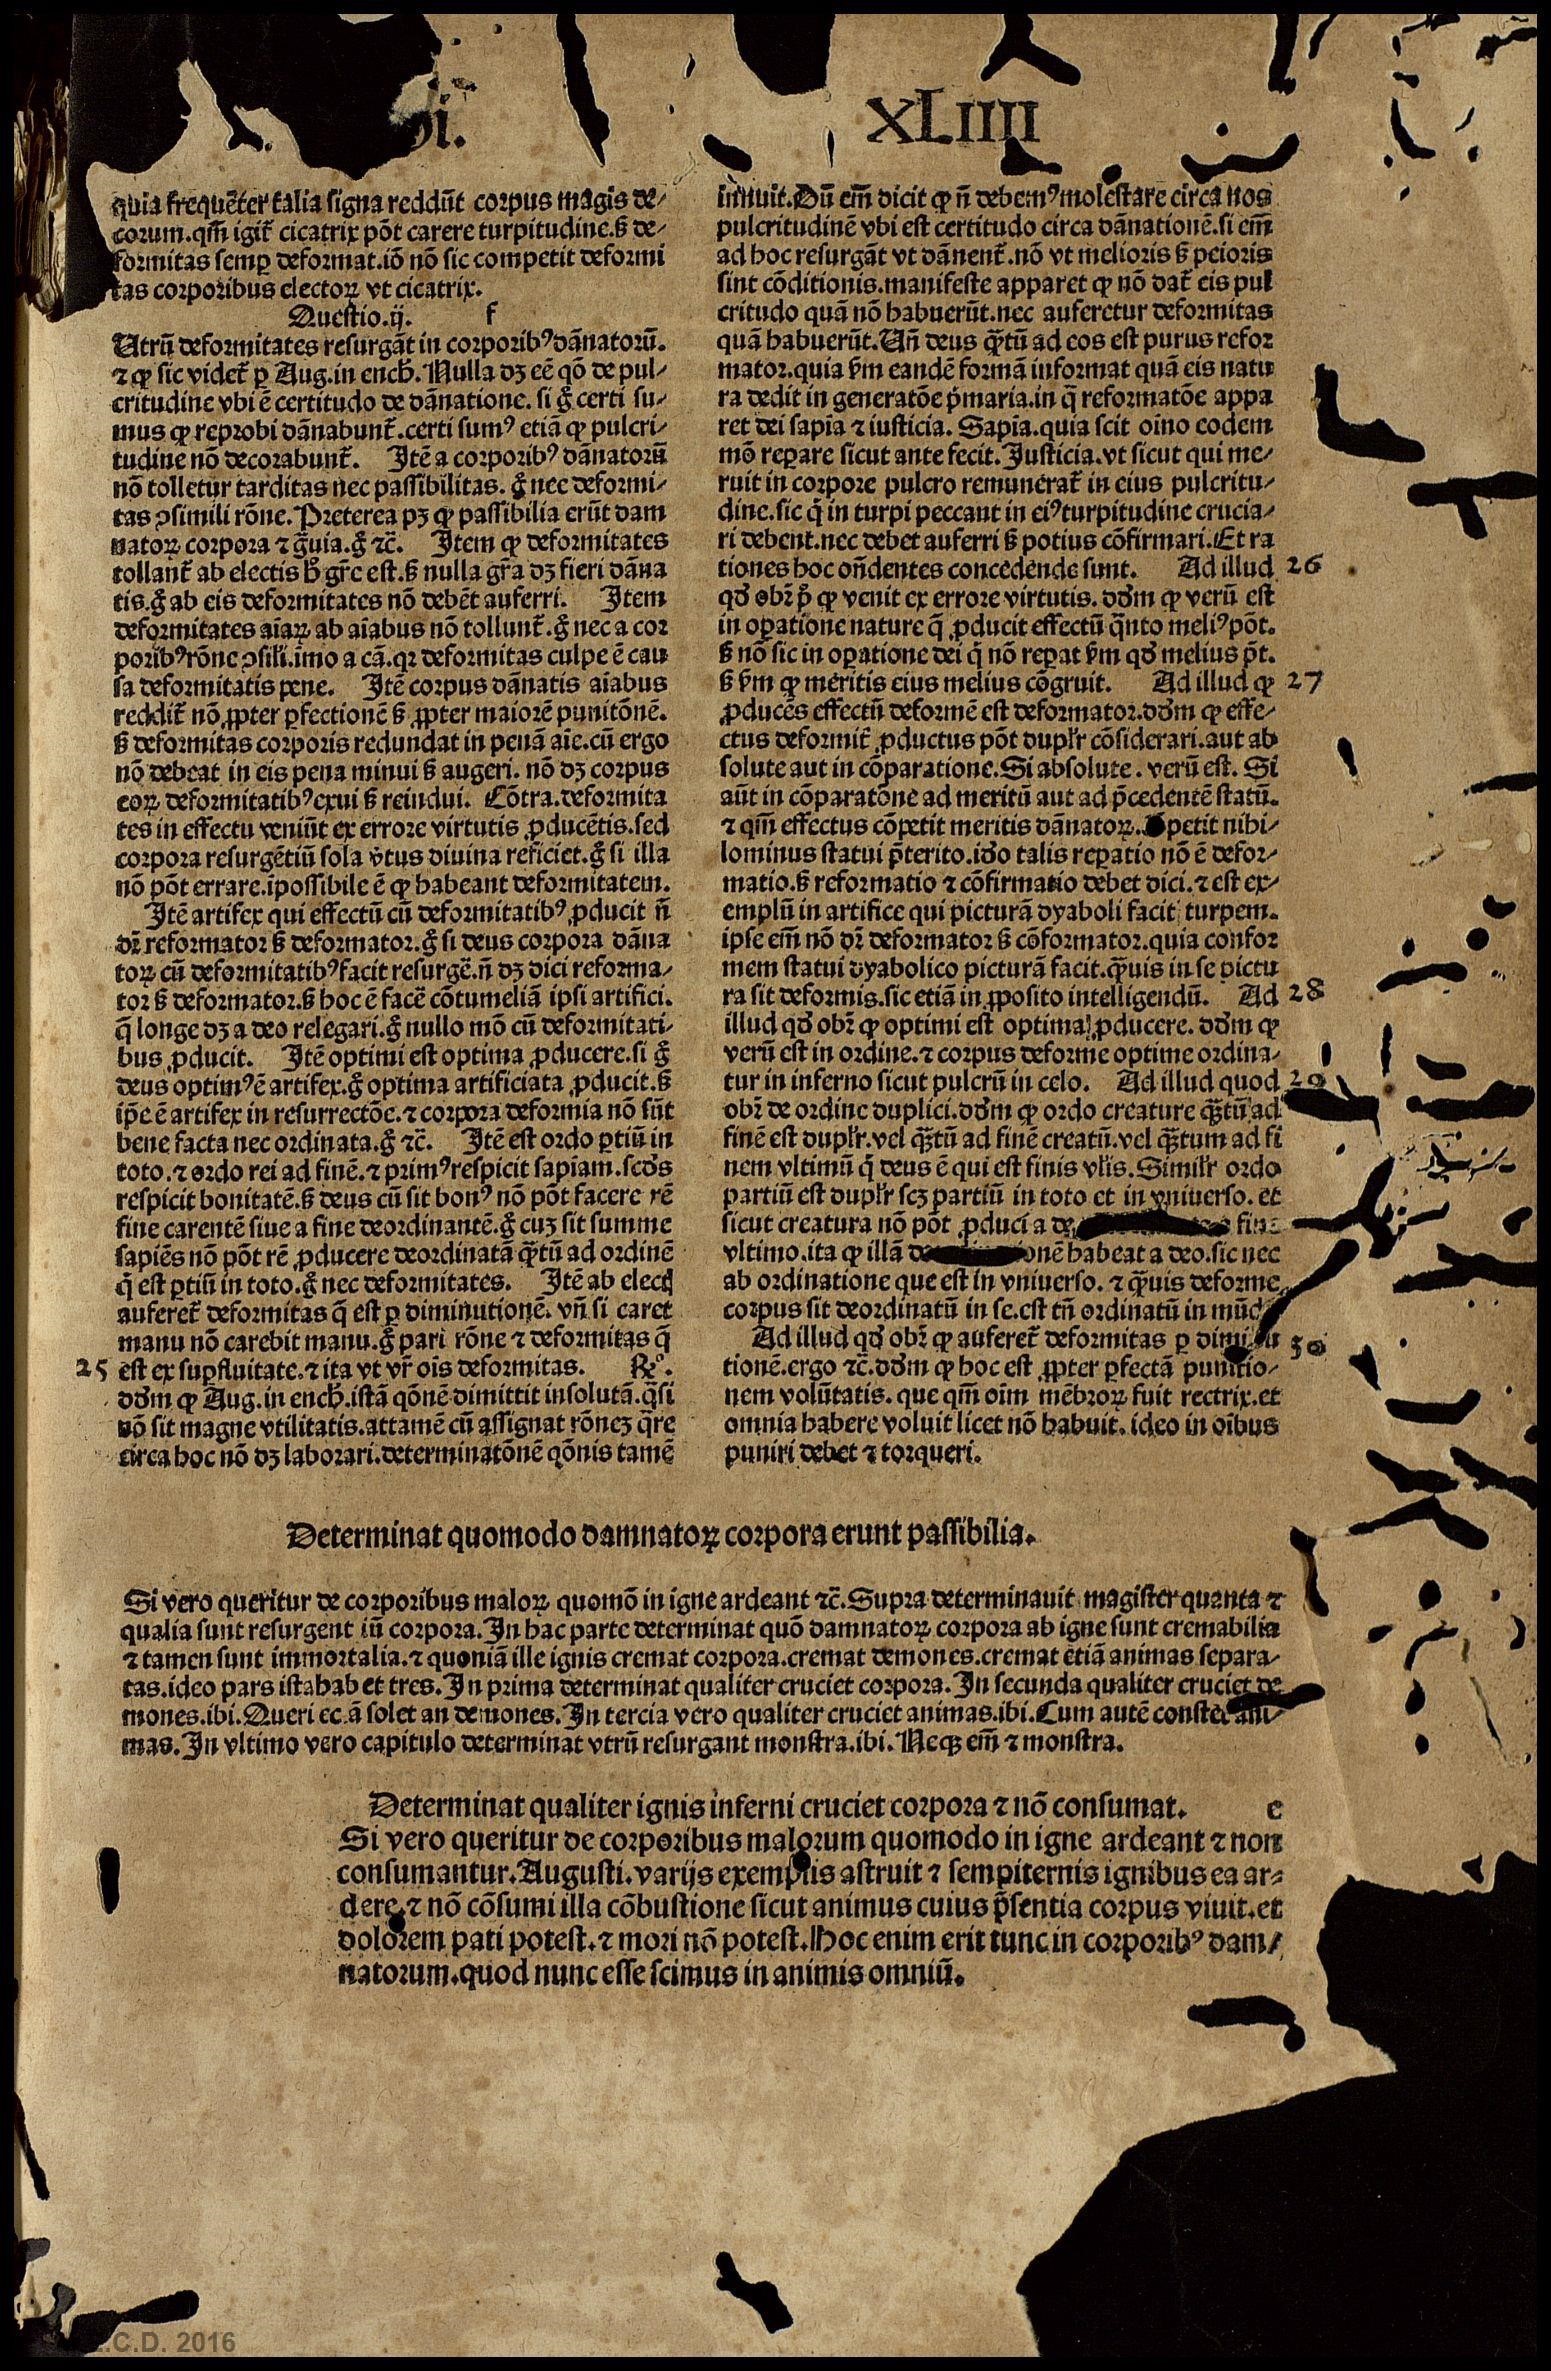 bi.
XLIIII
quia frequēter talia signa reddūt corpus magis de/
corum.qm̄ igit̄ cicatrix pōt carere turpitudine.ꝫ de/
formitas semꝑ deformat.iō nō sic competit deformi
tas corporibus electoꝝ vt cicatrix.
Questio.ij. f
Utrū deformitates resurgāt in corporibꝰ dānatorū.
⁊ ꝙ sic videt̄ ꝑ Aug.in ench̄. Nulla dꝫ eē qō de pul/
critudine vbi ē certitudo de dānatione. si g̊ certi su/
mus ꝙ reprobi dānabunt̄.certi sumꝰ etiā ꝙ pulcri/
tudine nō decorabunt̄. Itē a corporibꝰ dānatorū
nō tolletur tarditas nec passibilitas. g̊ nec deformi/
tas ꝯsimili rōne. Preterea pꝫ ꝙ passibilia erūt dam
natoꝝ corpora ⁊ g̃uia.g̊ ⁊c̄. Item ꝙ deformitates
tollant̄ ab electis h̊ gr̄e est.ꝫ nulla gr̄a dꝫ fieri dāna
tis.g̊ ab eis deformitates nō debēt auferri. Item
deformitates aīaꝝ ab aīabus nō tollunt̄.g̊ nec a cor
poribꝰ rōne ꝯsili.īmo a cā.qꝛ deformitas culpe ē cau
sa deformitatis pene. Itē corpus dānatis aīabus
reddit̄ nō ꝓpter ꝑfectionē ꝫ ꝓpter maiorē punitōnē.
ꝫ deformitas corporis redundat in penā aīe.cū ergo
nō debeat in eis pena minui ꝫ augeri. nō dꝫ corpus
eoꝝ deformitatibꝰ exui ꝫ reindui. Cōtra.deformita
tes in effectu veniūt ex errore virtutis ꝓducētis.sed
corpora resurgētiū sola v̊tus diuina reficiet.g̊ si illa
nō pōt errare.īpossibile ē ꝙ habeant deformitatem.
Itē artifex qui effectū cū deformitatibꝰ ꝓducit n̄
dr̄ reformator ꝫ deformator.g̊ si deus corpora dāna
toꝝ cū deformitatibꝰ facit resurgē.n̄ dꝫ dici reforma/
tor ꝫ deformator.ꝫ hoc ē facē cōtumeliā ipsi artifici.
q̄ longe dꝫ a deo relegari.g̊ nullo mō cū deformitati/
bus ꝓducit. Itē optimi est optima ꝓducere.si g̊
deus optimꝰ ē artifex.g̊ optima artificiata ꝓducit.ꝫ
ip̄e ē artifex in resurrectōe.⁊ corpora deformia nō sūt
bene facta nec ordinata.g̊ ⁊c̄. Itē est ordo ꝑtiū in
toto.⁊ ordo rei ad finē.⁊ primꝰ respicit sapiam.scd̄s
respicit bonitatē.ꝫ deus cū sit bonꝰ nō pōt facere rē
fine carentē siue a fine deordinantē.g̊ cuꝫ sit summe
sapiēs nō pōt rē ꝓducere deordinatā q̄tū ad ordinē
q̄ est ꝑtiū in toto.g̊ nec deformitates. Itē ab elect
auferet̄ deformitas q̄ est ꝑ diminutionē. vn̄ si caret
manu nō carebit manu.g̊ pari rōne ⁊ deformitas q̄
25 est ex suꝑfluitate.⁊ ita vt vr̄ oīs deformitas. ℞º.
dōm ꝙ Aug.in ench̄.istā qōnē dimittit insolutā.q̄si
nō sit magne vtilitatis.attamē cū assignat rōneꝫ q̄re
circa hoc nō dꝫ laborari.determinatōnē qōnis tamē
innuit.Dū em̄ dicit ꝙ n̄ debemꝰ molestare circa nos
pulcritudinē vbi est certitudo circa dānationē.si em̄
ad hoc resurgāt vt dānent̄.nō vt melioris ꝫ peioris
sint cōditionis.manifeste apparet ꝙ nō dat̄ eis pul
critudo quā nō habuerūt.nec auferetur deformitas
quā habuerūt.Un̄ deus q̄tū ad eos est purus refor
mator.quia v̊m eandē formā informat quā eis natu
ra dedit in generatōe p̄maria.in q̄ reformatōe appa
ret dei sapīa ⁊ iusticia. Sapīa.quia scit oīno eodem
mō reꝑare sicut ante fecit. Justicia.vt sicut qui me/
ruit in corpore pulcro remunerat̄ in eius pulcritu/
dine.sic q̄ in turpi peccant in eiꝰ turpitudine crucia/
ri debent.nec debet auferri ꝫ potius cōfirmari.Et ra
tiones hoc on̄dentes concedende sunt. Ad illud 26
qd̄ obr̄ p̄ ꝙ venit ex errore virtutis. dōm ꝙ verū est
in oꝑatione nature q̄ ꝓducit effectū q̄nto meliꝰ pōt.
ꝫ nō sic in oꝑatione dei q̄ nō reꝑat v̊m qd̄ melius pt̄.
ꝫ v̊m ꝙ meritis eius melius cōgruit. Ad illud ꝙ 27
ꝓducēs effectū deformē est deformator.dōm ꝙ effe/
ctus deformit̄ ꝓductus pōt duplr̄ cōsiderari.aut ab
solute aut in cōparatione.Si absolute. verū est. Si
aūt in cōparatōne ad meritū aut ad p̄cedentē statū.
⁊ qm̄ effectus cōpetit meritis dānatoꝝ. petit nihi/
lominus statui p̄terito.idō talis reꝑatio nō ē defor/
matio.ꝫ reformatio ⁊ cōfirmatio debet dici.⁊ est ex/
emplū in artifice qui picturā dyaboli facit turpem.
ipse em̄ nō dr̄ deformator ꝫ cōformator.quia confor
mem statui dyabolico picturā facit.q̄uis in se pictu
ra sit deformis.sic etiā in ꝓposito intelligendū. Ad 28
illud qd̄ obr̄ ꝙ optimi est optima ꝓducere. dōm ꝙ
verū est in ordine.⁊ corpus deforme optime ordina/
tur in inferno sicut pulcrū in celo. Ad illud quod 29
obr̄ de ordine duplici.dōm ꝙ ordo creature q̄tū ad
finē est duplr̄.vel q̄tū ad finē creatū.vel q̄tum ad fi
nem vltimū q̄ deus ē qui est finis vl̄is. Simil̄r ordo
partiū est duplr̄ scꝫ partiū in toto et in vniuerso. et
sicut creatura nō pōt ꝓduci a de fine
vltimo.ita ꝙ illā de onē habeat a deo.sic nec
ab ordinatione que est in vniuerso. ⁊ q̄uis deforme
corpus sit deordinatū in se.est tn̄ ordinatū in mūd
Ad illud qd̄ obr̄ ꝙ auferet̄ deformitas ꝑ 30
tionē.ergo ⁊c̄.dōm ꝙ hoc est ꝓpter ꝑfectā punitio/
nem volūtatis. que qm̄ oīm mēbroꝝ fuit rectrix.et
omnia habere voluit licet nō habuit. ideo in oībus
puniri debet ⁊ torqueri.
Determinat quomodo damnatoꝝ corpora erunt passibilia.
Si vero queritur de corporibus maloꝝ quomō in igne ardeant ⁊c̄. Supra determinauit magister quanta ⁊
qualia sunt resurgent iū corpora. In hac parte determinat quō damnatoꝝ corpora ab igne sunt cremabilia
⁊ tamen sunt immortalia.⁊ quoniā ille ignis cremat corpora.cremat demones.cremat etiā animas separa/
tas.ideo pars ista habet tres. In prima determinat qualiter cruciet corpora. In secunda qualiter cruciet de
mones.ibi. Queri ec ā solet an demones. In tercia vero qualiter cruciet animas.ibi. Cum autē constet ani/
mas. In vltimo vero capitulo determinat vtrū resurgant monstra.ibi. Neqꝫ em̄ ⁊ monstra.
Determinat qualiter ignis inferni cruciet corpora ⁊ nō consumat. e
Si vero queritur de corporibus malorum quomodo in igne ardeant ⁊ non
consumantur. Augusti. varijs exemplis astruit ⁊ sempiternis ignibus ea ar/
dere.⁊ nō cōsumi illa cōbustione sicut animus cuius p̄sentia corpus viuit.et
dolorem pati potest.⁊ mori nō potest. Hoc enim erit tunc in corporibꝰ dam/
natorum.quod nunc esse scimus in animis omniū.
.C.D. 2016